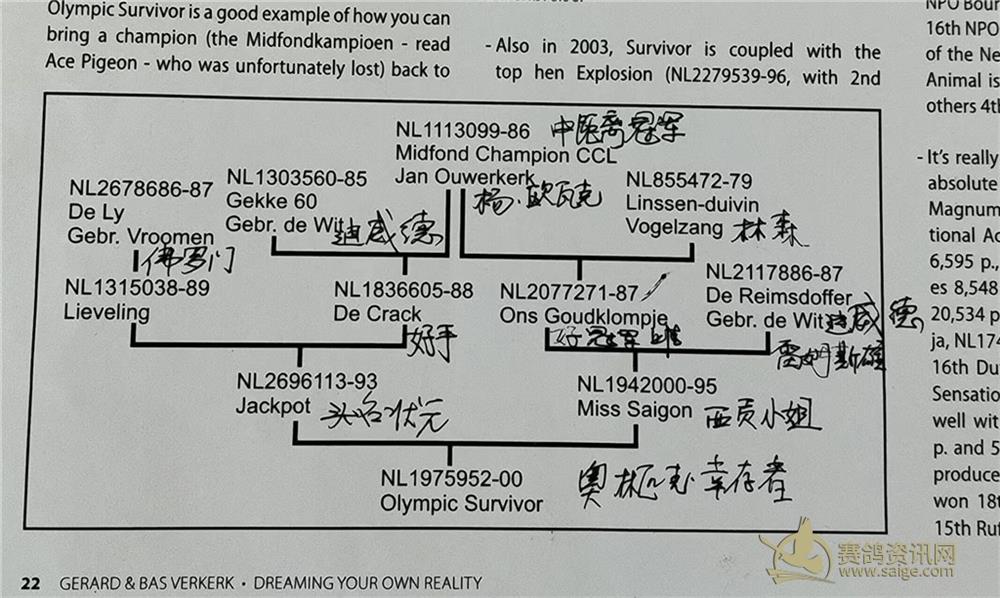 Olympic Survivor is a good example of how you can
bring a champion (the Midfondkampioen - read
Ace Pigeon - who was unfortunately lost) back to
- Also in 2003, Survivor is coupled with the
top hen Explosion (NL2279539-96, with 2nd
NPO Bour
16th NPO
of the Ne
Animal is
others 4th
- It's really
absolute
Magnum
tional Ac
6,595 p.,
es 8,548
20,534 p
ja, NL174
16th Du
Sensatio
well wit
p. and 5
produce
won 18t
15th Ruf
NL1113099-86 中距离冠军
Midfond Champion CCL
Jan Ouwerkerk 杨·欧瓦克
NL2678686-87
De Ly
Gebr. Vroomen
佛罗门
NL1303560-85
Gekke 60
Gebr. de Wit 迪威德
NL855472-79
Linssen-duivin
Vogelzang 林森
NL1315038-89
Lieveling
NL1836605-88
De Crack
好手
NL2077271-87
Ons Goudklompje
好冠军
NL2117886-87
De Reimsdoffer
Gebr. de Wit 迪威德
雷姆斯雄
NL2696113-93
Jackpot 头名状元
NL1942000-95
Miss Saigon 西贡小姐
NL1975952-00
Olympic Survivor 奥林匹克幸存者
22 GERARD & BAS VERKERK • DREAMING YOUR OWN REALITY
赛鸽资讯网
www.saige.com